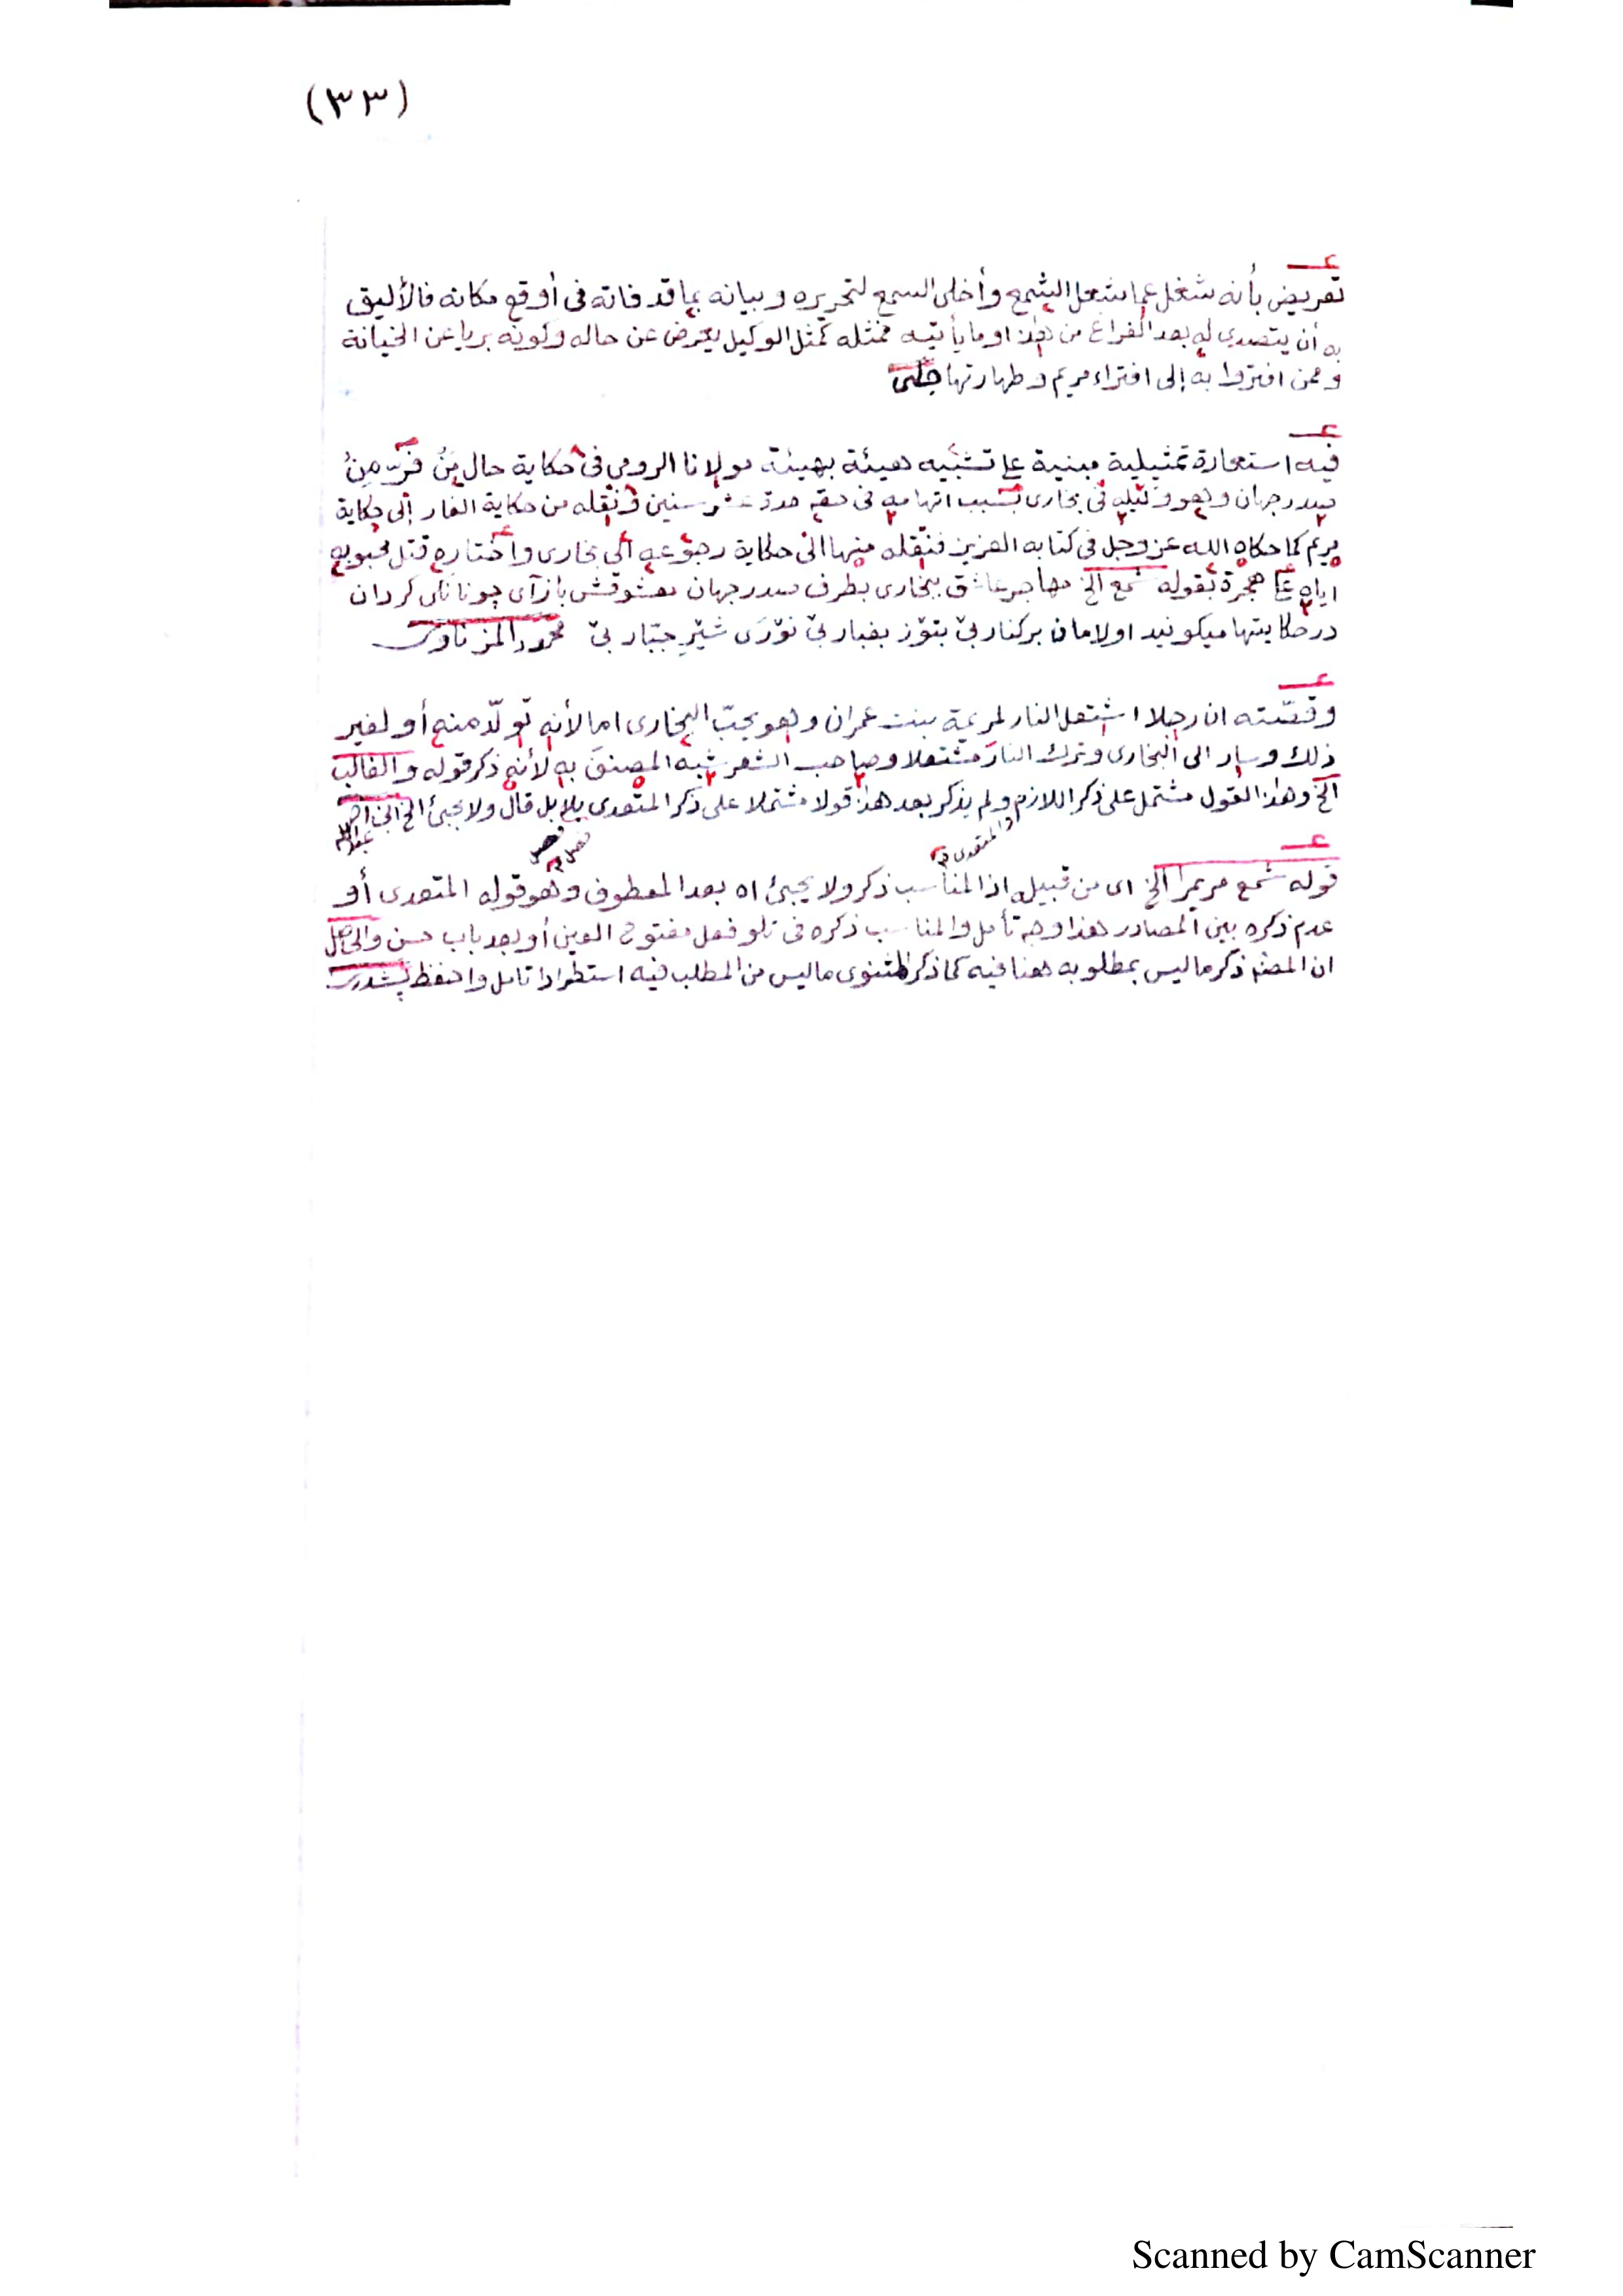 (٣٣)
تعريض بأنه شغل عما شعل الشمع وأخلى السمع لتحريره وبيانه بما قد فاته فى أوقع مكانه فالأليق
به أن يتصدى له بعد الفراغ من هذا او ما يأتيه فمثله كمثل الوكيل يعرض عن حاله وكونه بريا عن الخيانة
وممن افتروا به إلى افتراء مريم وطهارتها جلى
فيه استعارة تمثيلية مبنية على تشبيه هيئة بهيئة مولانا الرومى فى حكاية حال من فرّ من
صدر جهان وهو وكيله فى بخارى بسبب اتهامه فى حقه مدة عشر سنين ونقله من حكاية الفار إلى حكاية
مريم كما حكاه الله عز وجل فى كتابه العزيز فنقله منها الى حكاية رجوعه الى بخارى واختاره قتل محبوبه
اياه على هجرة بقوله شمع الخ مهاجر عاشق ببخارى بطرف صدر جهان معشوقش باز آى چونانى كردان
در حكايتها ميكونيد اولامان بركنار بىٓ بتوٓز بغبار بىٓ نوٓرى شيٓر جبّار بىٓ محمود المزناوى
وقصّته ان رجلا اشتعل النار لمريمة بنت عمران وهو يحبّ البخارى اما لأنه تولّد منه أو لغير
ذلك وسار الى البخارى وترك النار مشتعلا وصاحب الشعر شبه المصنف به لأنه ذكر قوله والغالب
الخ وهذا القول مشتمل على ذكر اللازم ولم يذكر بعد هذا قولا مشتملا على ذكر المتعدى بلا بل قال ولا يجئ الخ
والمتعدى
قوله شمع مريم را الخ اى من قبيله اذ المناسب ذكر ولا يجئ اه بعد المعطوف وهو قوله المتعدى أو
عدم ذكره بين المصادر هذا وجه تأمل والمناسب ذكره فى تلو فعل مفتوح العين أو بعد باب حسن والحاصل
ان المصنف ذكر ما ليس بمطلوبه هنا فيه كما ذكر المثنوى ما ليس من المطلب فيه استطرادا تامل واحفظ
Scanned by CamScanner